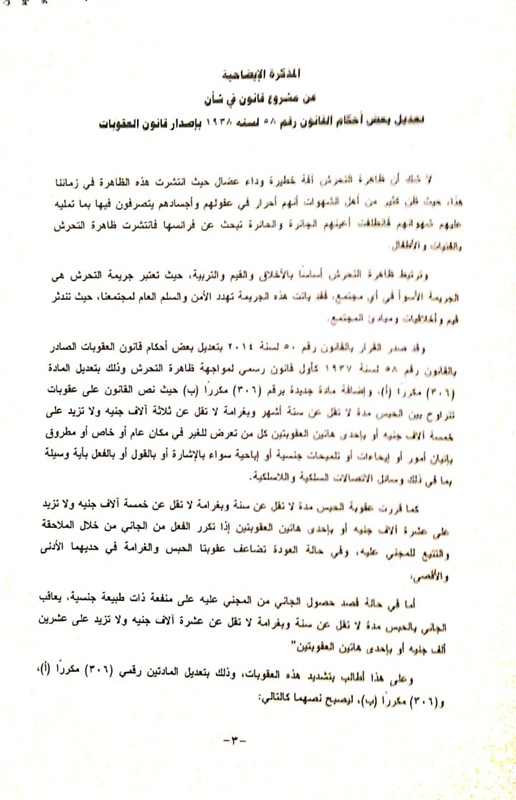 المذكرة الإيضاحية
من مشروع قانون في شأن
تعديل بعض أحكام القانون رقم ٥٨ لسنه ١٩٣٨ بإصدار قانون العقوبات
لا شك أن ظاهرة التحرش آفة خطيرة وداء عضال حيث انتشرت هذه الظاهرة في زماننا
هذا، حيث ظن كثير من أهل الشهوات أنهم أحرار في عقولهم وأجسادهم يتصرفون فيها بما تمليه
عليهم شهواتهم فانطلقت أعينهم الجائرة والحائرة تبحث عن فرائسها فانتشرت ظاهرة التحرش
بالفتيات والأطفال.
وترتبط ظاهرة التحرش أساسًا بالأخلاق والقيم والتربية، حيث تعتبر جريمة التحرش هي
الجريمة الأسوأ في أي مجتمع، فقد باتت هذه الجريمة تهدد الأمن والسلم العام لمجتمعنا، حيث تندثر
قيم وأخلاقيات ومبادئ المجتمع.
وقد صدر القرار بالقانون رقم ٥٠ لسنة ٢٠١٤ بتعديل بعض أحكام قانون العقوبات الصادر
بالقانون رقم ٥٨ لسنة ١٩٣٧ كأول قانون رسمي لمواجهة ظاهرة التحرش وذلك بتعديل المادة
(٣٠٦) مكررًا (أ)، وإضافة مادة جديدة برقم (٣٠٦) مكررًا (ب) حيث نص القانون على عقوبات
تتراوح بين الحبس مدة لا تقل عن ستة أشهر وبغرامة لا تقل عن ثلاثة آلاف جنيه ولا تزيد على
خمسة آلاف جنيه أو بإحدى هاتين العقوبتين كل من تعرض للغير في مكان عام أو خاص أو مطروق
بإتيان أمور أو إيحاءات أو تلميحات جنسية أو إباحية سواء بالإشارة أو بالقول أو بالفعل بأية وسيلة
بما في ذلك وسائل الاتصالات السلكية واللاسلكية.
كما قررت عقوبة الحبس مدة لا تقل عن سنة وبغرامة لا تقل عن خمسة آلاف جنيه ولا تزيد
على عشرة آلاف جنيه أو بإحدى هاتين العقوبتين إذا تكرر الفعل من الجاني من خلال الملاحقة
والتتبع للمجني عليه، وفي حالة العودة تضاعف عقوبتا الحبس والغرامة في حديهما الأدنى
والأقصى.
أما في حالة قصد حصول الجاني من المجني عليه على منفعة ذات طبيعة جنسية، يعاقب
الجاني بالحبس مدة لا تقل عن سنة وبغرامة لا تقل عن عشرة آلاف جنيه ولا تزيد على عشرين
ألف جنيه أو بإحدى هاتين العقوبتين"
وعلى هذا أطالب بتشديد هذه العقوبات، وذلك بتعديل المادتين رقمي (٣٠٦) مكررًا (أ)،
و(٣٠٦) مكررًا (ب)، ليصبح نصهما كالتالي:
-٣-